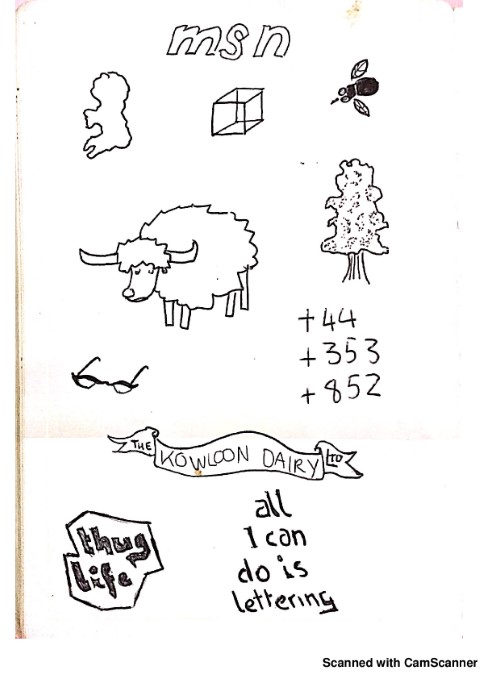 msn
+44
+353
+852
THE KOWLOON DAIRY LTD
thug
life
all
I can
do is
lettering
Scanned with CamScanner